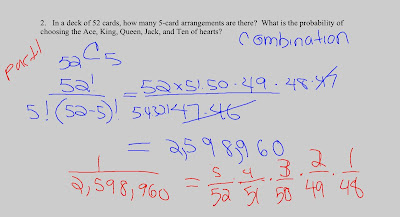 2. In a deck of 52 cards, how many 5-card arrangements are there? What is the probability of
choosing the Ace, King, Queen, Jack, and Ten of hearts?
Combination
part 1
52 C 5
52! / 5!(52-5)! = 52 x 51 . 50 . 49 . 48 . 47 / 54321 47 . 46
= 2,598,960
1 / 2,598,960 = 5/52 . 4/51 . 3/50 . 2/49 . 1/48